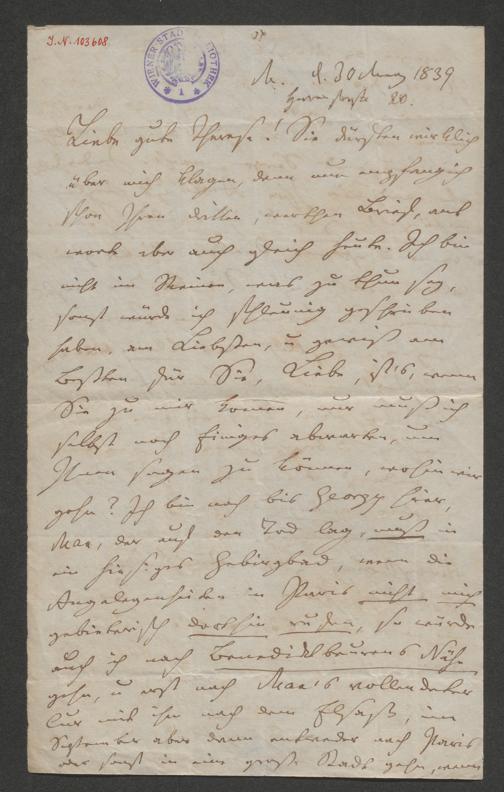 J. N. 103608
WIENER STADTBIBLIOTHEK
M. d. 30 März 1839
Herrnstraße 20.
Liebe gute Therese! Sie dürften wirklich
über mich klagen, denn nun empfang ich
schon Ihren dritten, werthen Brief, ant
worte aber auch gleich heute. Ich bin
nicht im Reinen, was zu thun sey,
sonst würde ich schleunig geschrieben
haben, am Liebsten, u gewiß am
Besten für Sie, Liebe, ist's, wenn
Sie zu mir kommen, nur muß ich
selbst noch Einiges abwarten, um
Ihnen sagen zu können, wohin wir
gehn? Ich bin noch bis Georgy hier,
Max, der auf den Tod lag, muß in
ein hiesiges Gebirgbad, wenn die
Angelegenheiten in Paris nicht mich
gebieterisch dorthin rufen, so würde
auch ich nach Benediktbeurens Nähe
gehn, u erst nach Max's vollendeter
Kur mit ihm nach dem Elsaß, im
September aber dann entweder nach Paris
oder sonst in eine große Stadt gehn, wenn